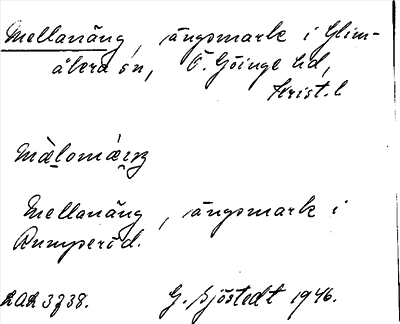 Mellanäng, ängsmark i Glim-
åkra sn, Ö. Göinge hd,
Krist. l
Mellanäng, ängsmark i
Rumperöd.
G. Sjöstedt 1946.